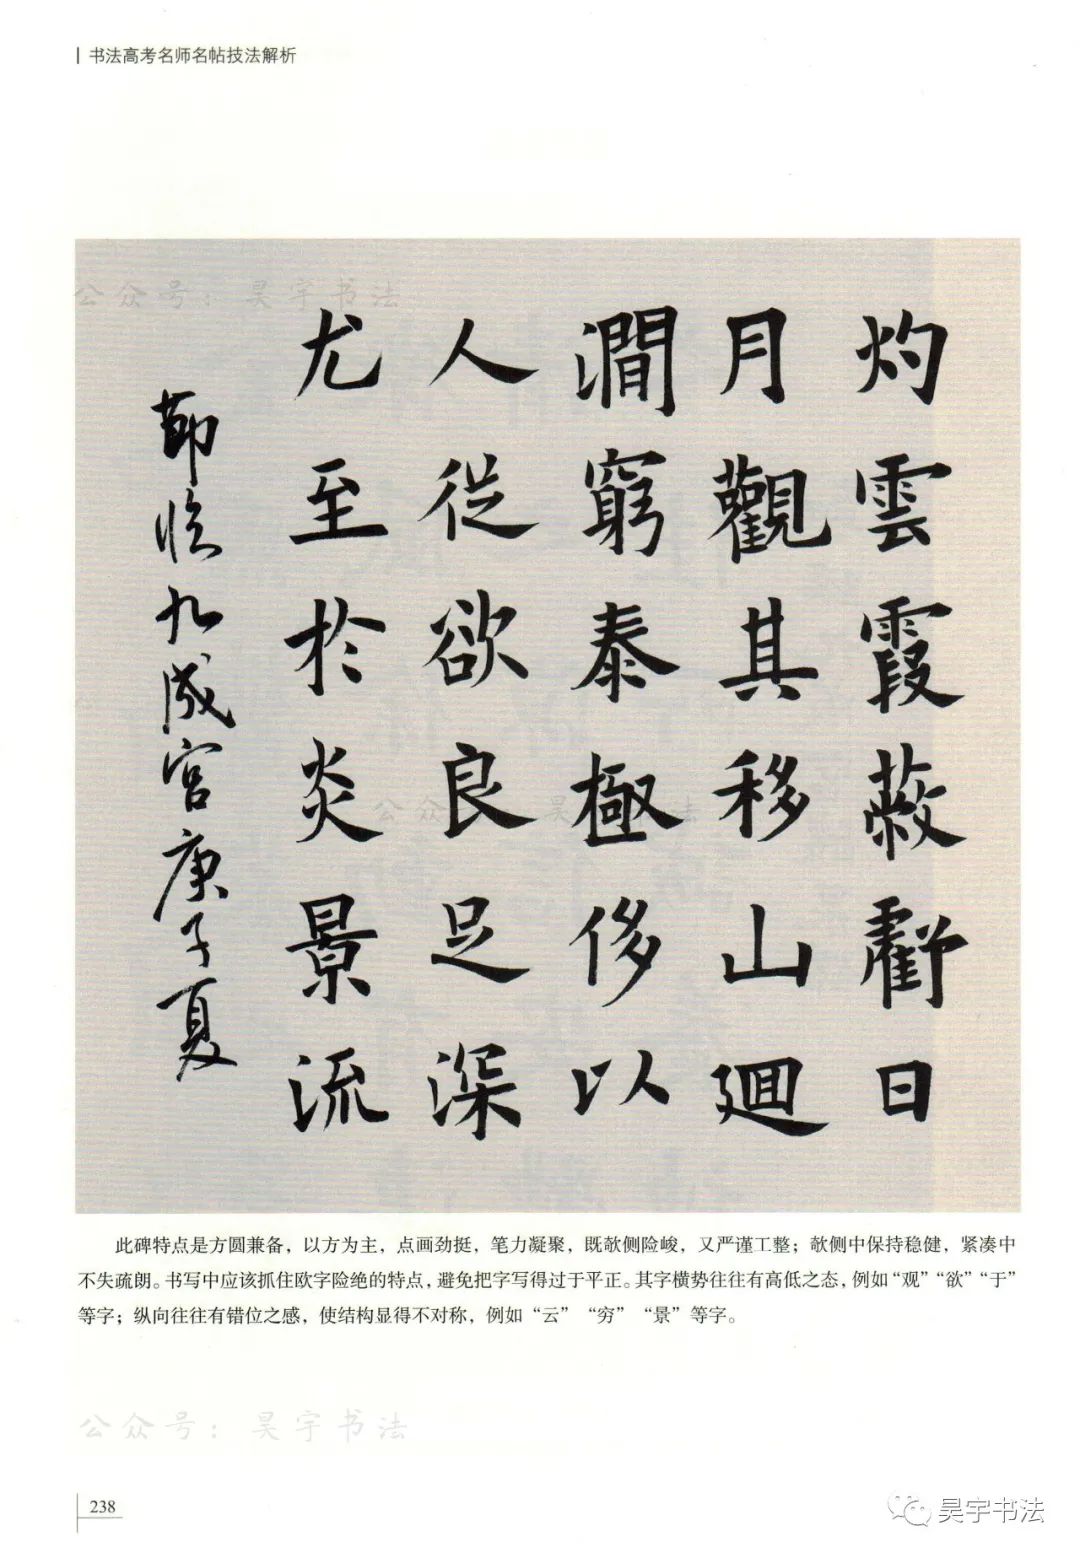 书法高考名师名帖技法解析
公众号：昊宇书法
灼雲霞蔽虧日
月觀其移山廻
澗窮泰極侈以
人從欲良足深
尤至於炎景流
節临九成宫庚子夏
公众号：昊宇书法
此碑特点是方圆兼备，以方为主，点画劲挺，笔力凝聚，既欹侧险峻，又严谨工整；欹侧中保持稳健，紧凑中
不失疏朗。书写中应该抓住欧字险绝的特点，避免把字写得过于平正。其字横势往往有高低之态，例如“观”“欲”“于”
等字；纵向往往有错位之感，使结构显得不对称，例如“云”“穷”“景”等字。
公众号：昊宇书法
238
昊宇书法